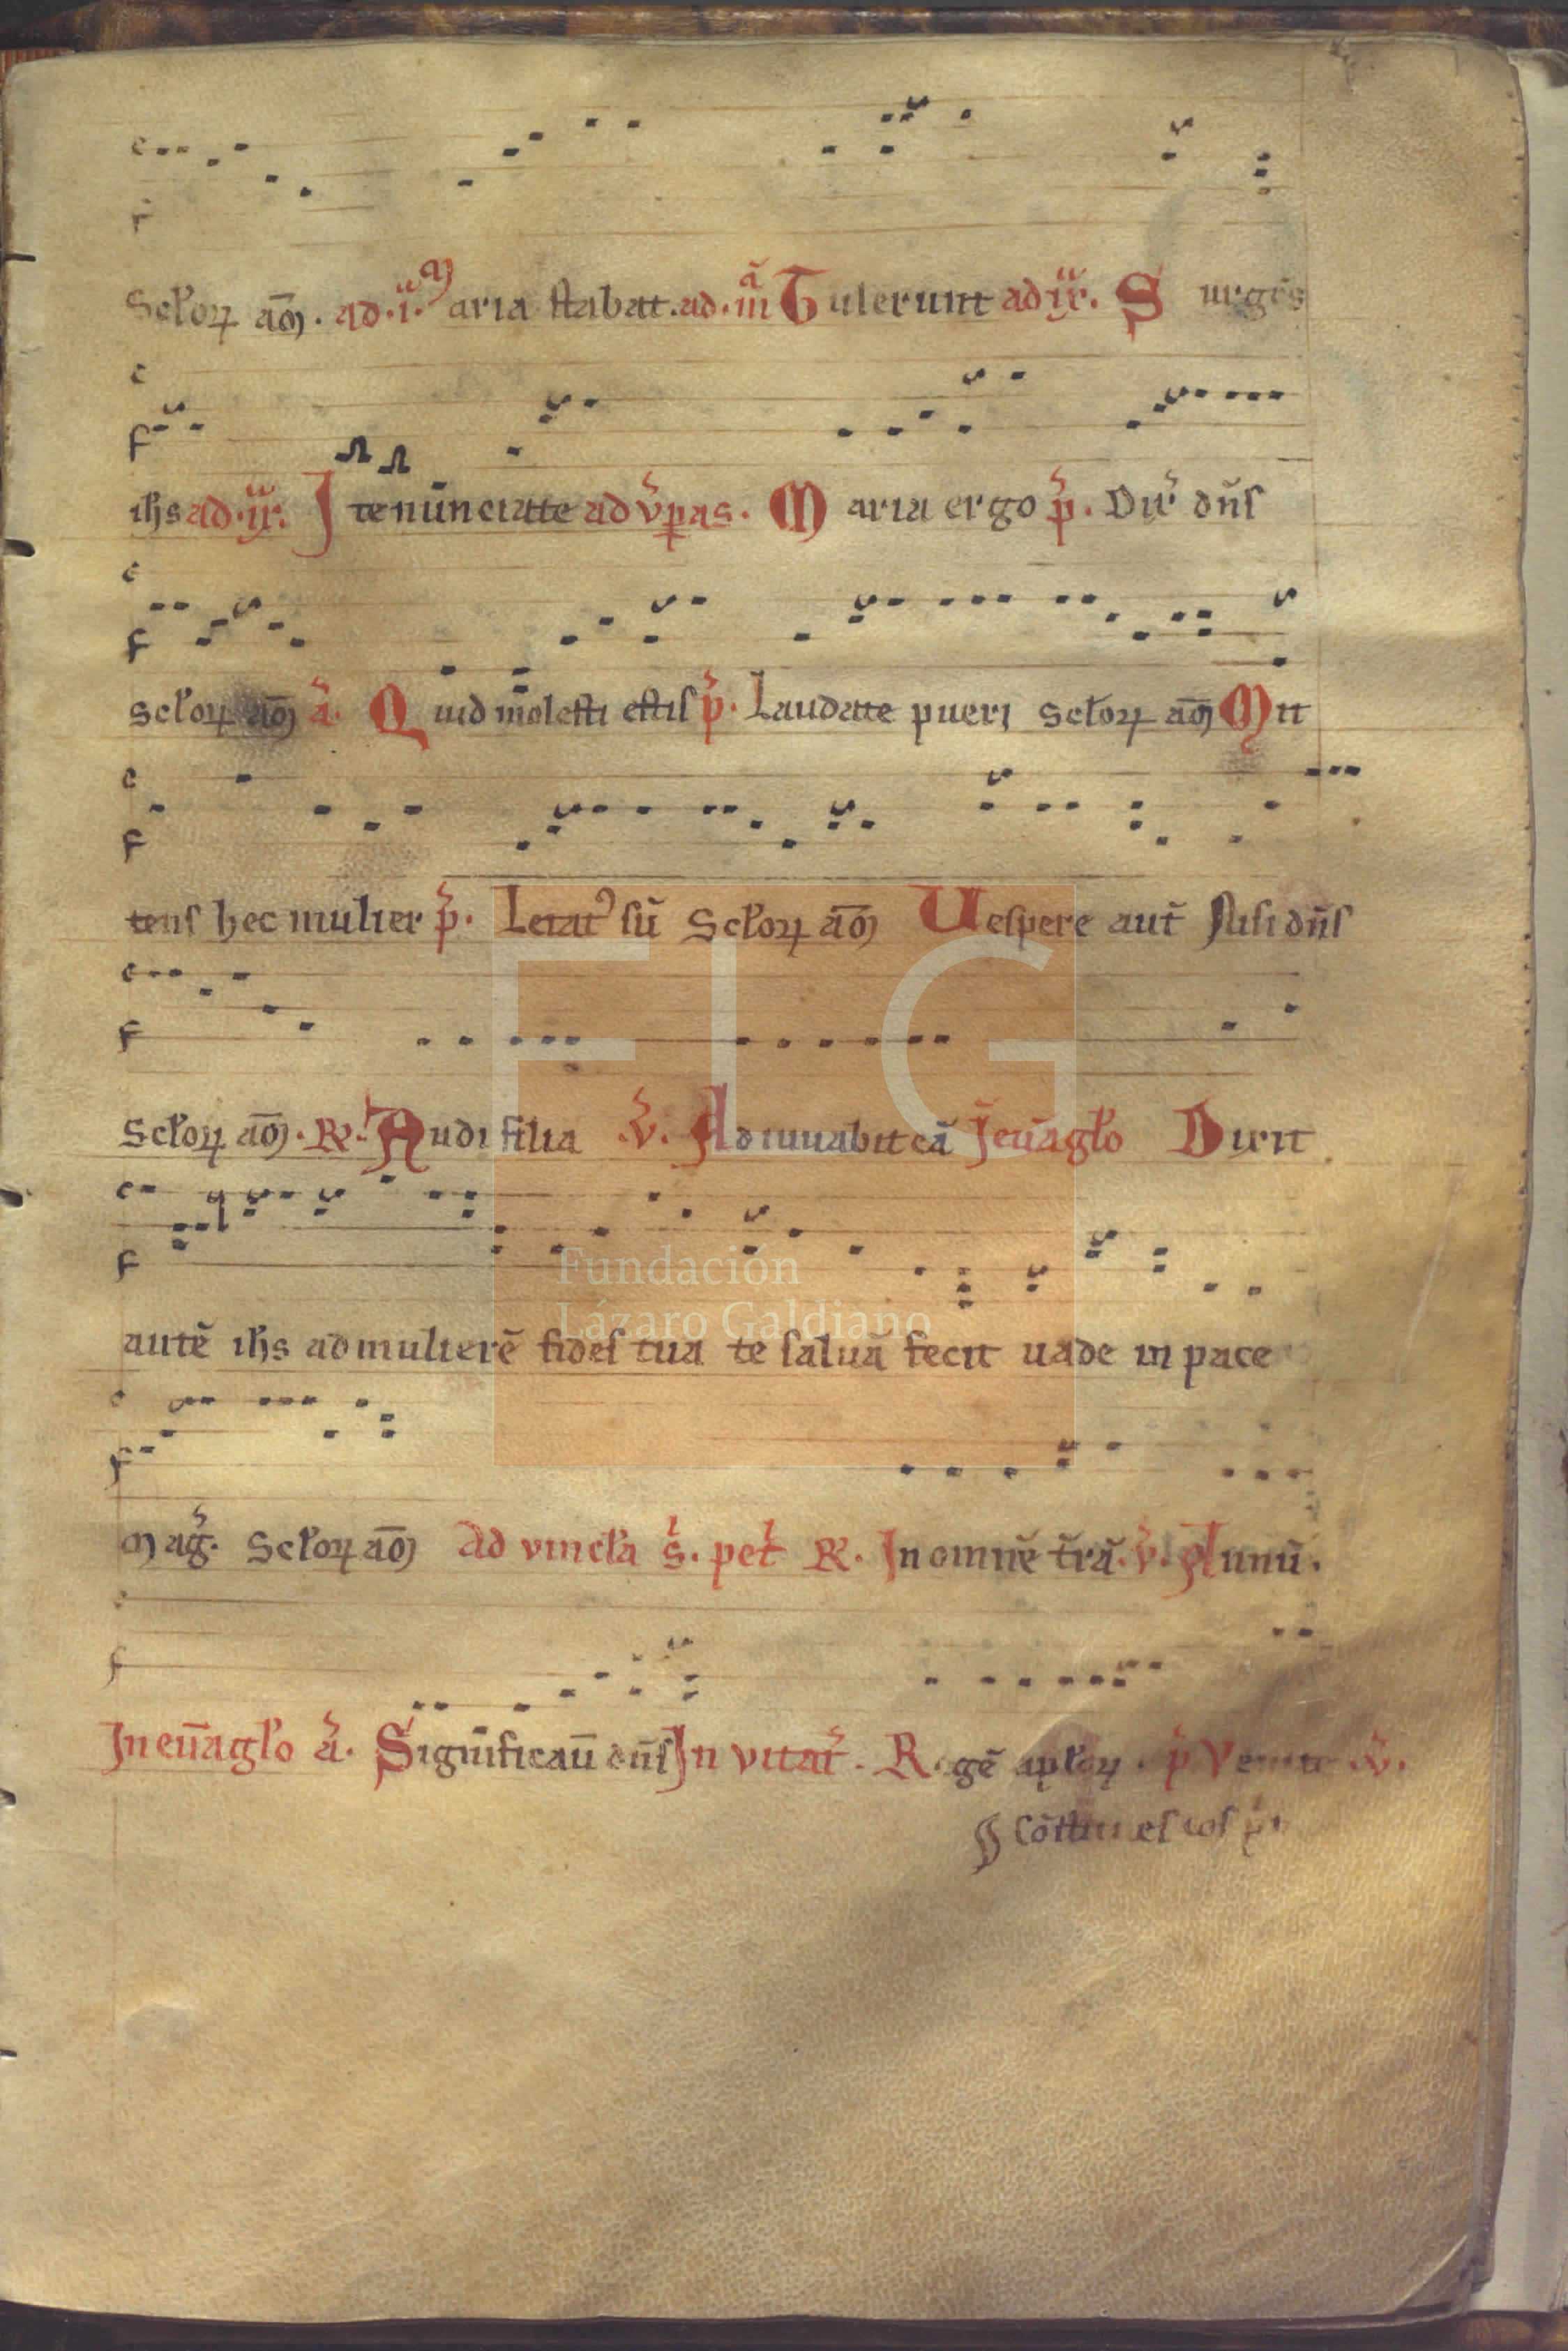 Scłoꝝ am̄. ad.i.ᵃ Maria stabat. ad.iii.ᵃ Tulerunt ad ix̄. Surgēs
ihs ad.ix̄. Ite nūnciate ad v̄ꝑas. Maria ergo p̄. Dix̄ dn̄s
Scłoꝝ am̄ ā. Quid molesti estis p̄. Laudate pueri Scłoꝝ am̄ Mit
tens hec mulier p̄. Letatꝰ sū Scłoꝝ am̄ Uespere aut̄ Nisi dn̄s
Scłoꝝ am̄. R̶. Audi filia v̄. Adiuuabit eā In eūāgło Dixit
autē ihs ad mulierē fides tua te saluā fecit uade in pace
Mag̃. Scłoꝝ am̄ Ad vincła s̄. pet̄ R̶. In omnē t̄rā. v̄.
In eūāgło ā. Significau̅ dn̄s In vitat̄. Regē apłoꝝ. p̄ Venite v̄.
Cōstitues eos
FLG
Fundación
Lázaro Galdiano